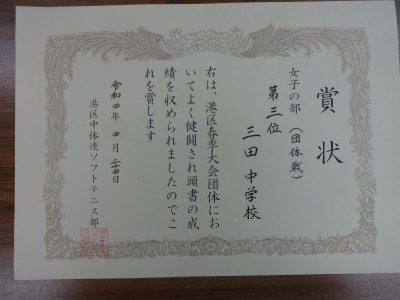 賞状
女子の部 (団体戦)
第三位
三田中学校
右は、港区春季大会団体にお
いてよく健闘され頭書の成
績を収められましたのでこ
れを賞します
令和四年 四月二十四日
港区中体連ソフトテニス部